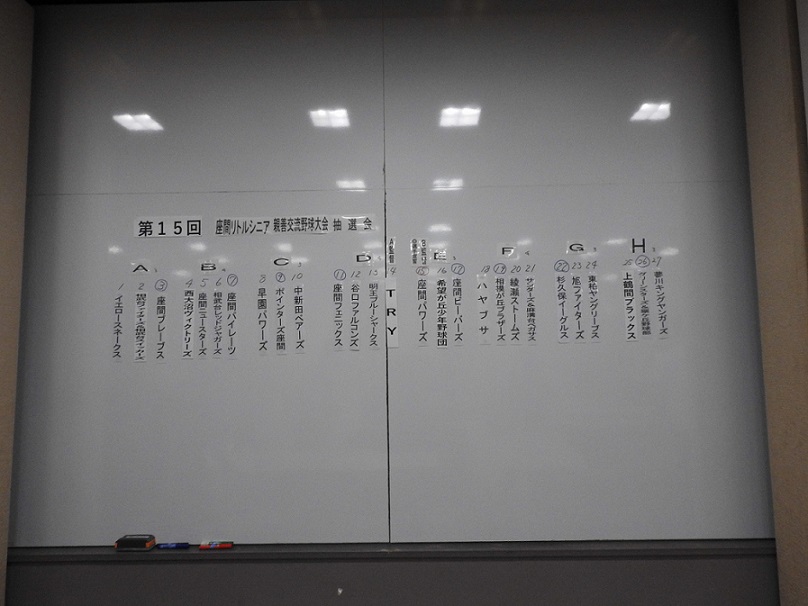 第15回 座間リトルシニア 親善交流野球大会 抽選会
A
1 イエロースネークス
2
3 座間ブレーブス
B
4 西大沼ヴィクトリーズ
5 座間ニュースターズ
6 相武台レッドジャガーズ
7 座間パイレーツ
C
8 早園パワーズ
9 ポインターズ座間
10 中新田ベアーズ
D
11 座間フェニックス
12 谷口ファルコンズ
13 明王ブルーシャークス
14 TRY
E
15 座間パワーズ
16 希望が丘少年野球団
17 座間ビーバーズ
F
18 ハヤブサ
19 相模が丘ブラザーズ
20 綾瀬ストームズ
21
G
22 杉久保イーグルス
23 旭ファイターズ
24 東松ヤングリーブス
H
25 上鶴間ブラックス
26
27 寒川キングヤンガーズ